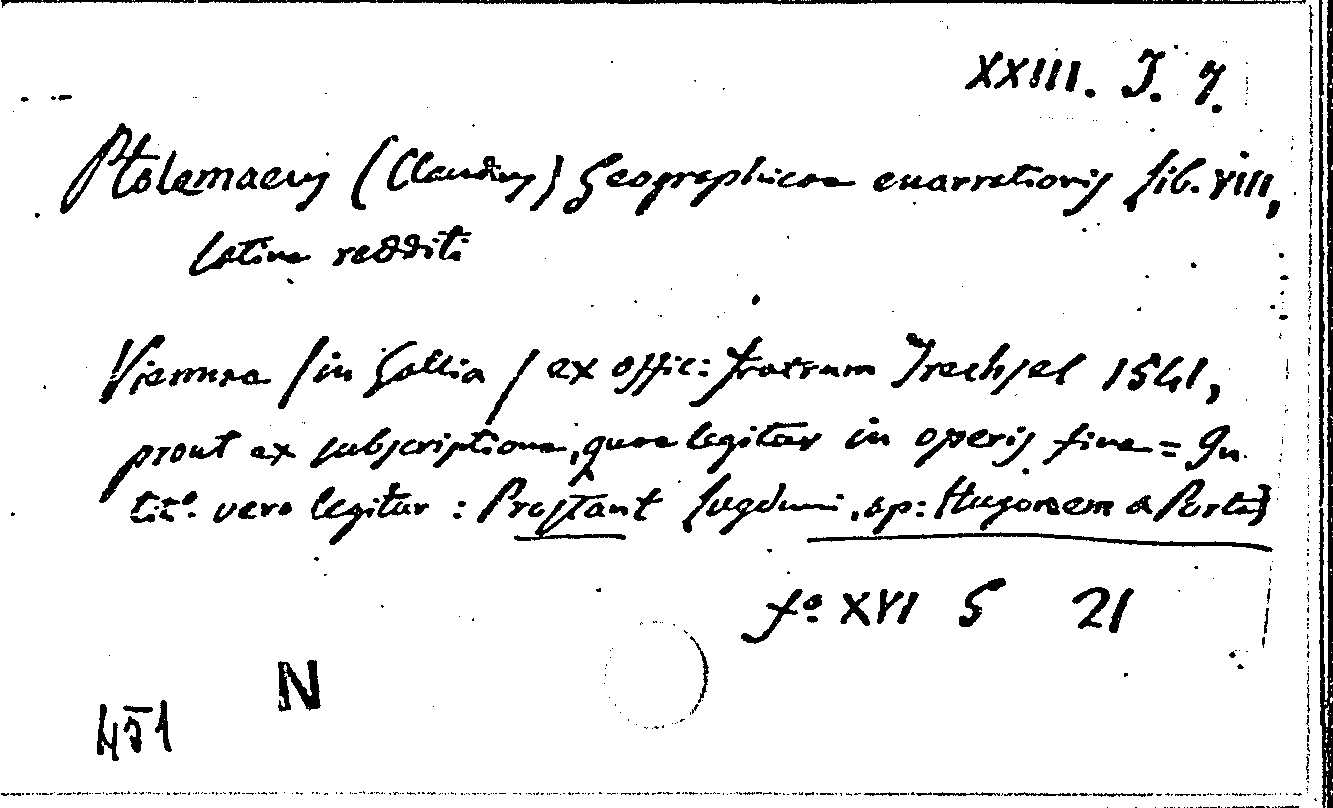 XXIII. J. 7.
Ptolemaeus (Claudius) Geographicae enarrationis lib. VIII,
latine redditi
Viennae / in Gallia / ex offic: fratrum Trechsel 1541,
prout ex subscriptione, quae legitur in operis fine = In
tit.º vero legitur : Prostant Lugduni, ap: Hugonem a Porta}
fº XVI S 21
N
451